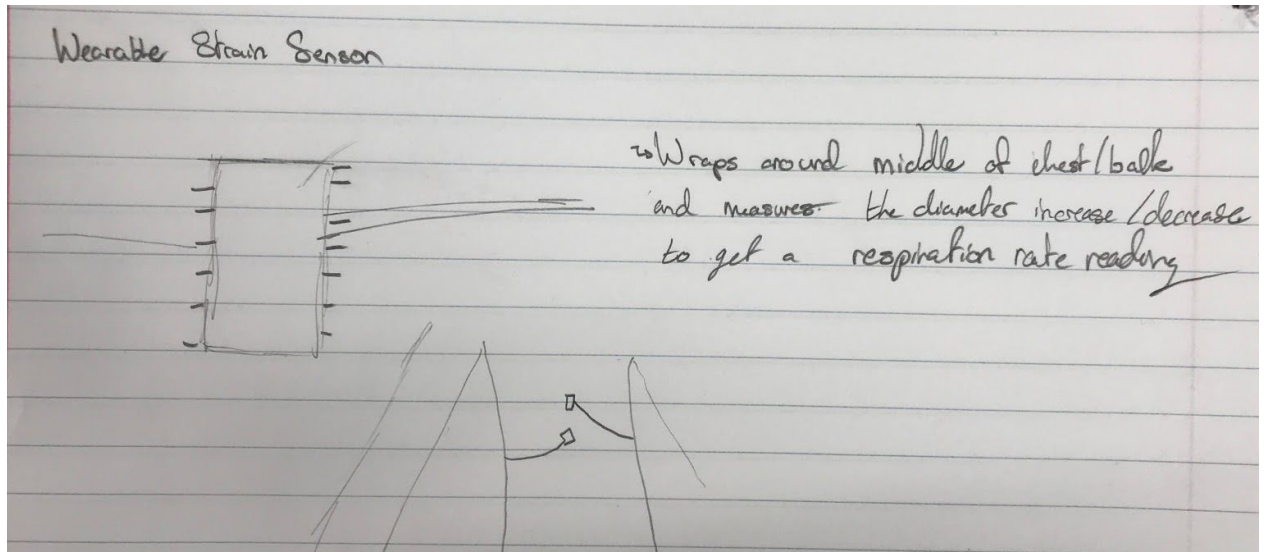 Wearable Strain Sensor
Wraps around middle of chest/back
and measures the diameter increase/decrease
to get a respiration rate reading